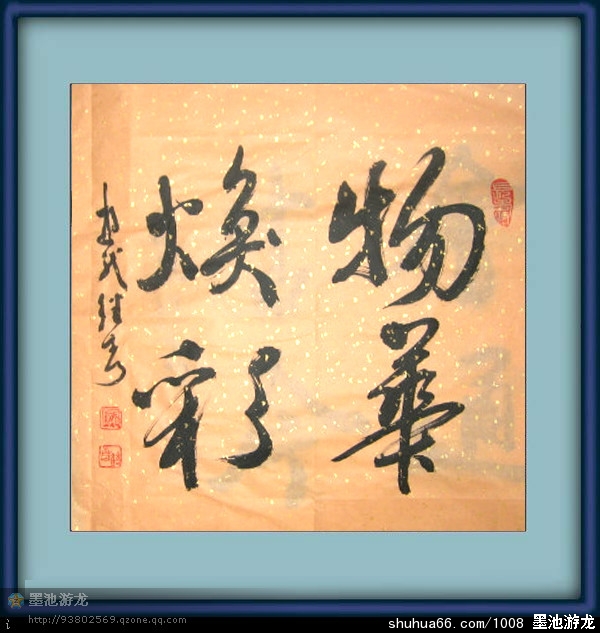 物華
煥彩
墨池游龙
http://93802569.qzone.qq.com
shuhua66.com/1008 墨池游龙